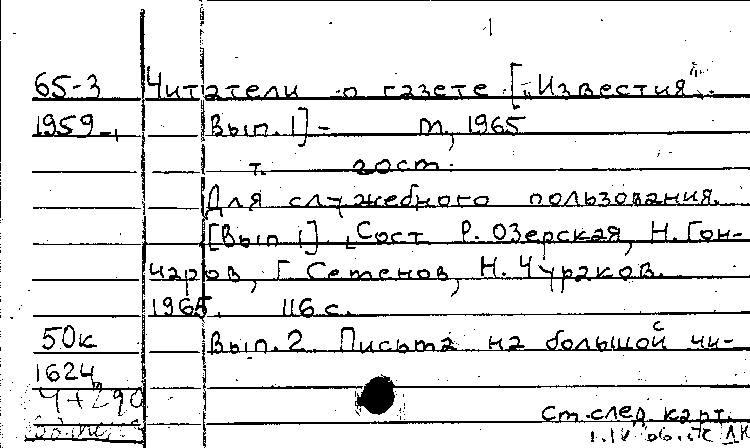 65-3 Читатели о газете [„Известия".
1959-1 Вып. 1] - М, 1965
т. гост.
Для служебного пользования.
[Вып 1]. [Сост Р. Озерская, Н. Гон-
чаров, Г Семенов, Н. Чураков.
1965. 116 с.
50к Вып. 2 Письма на большой чи-
1624
4+290
См. след. карт.